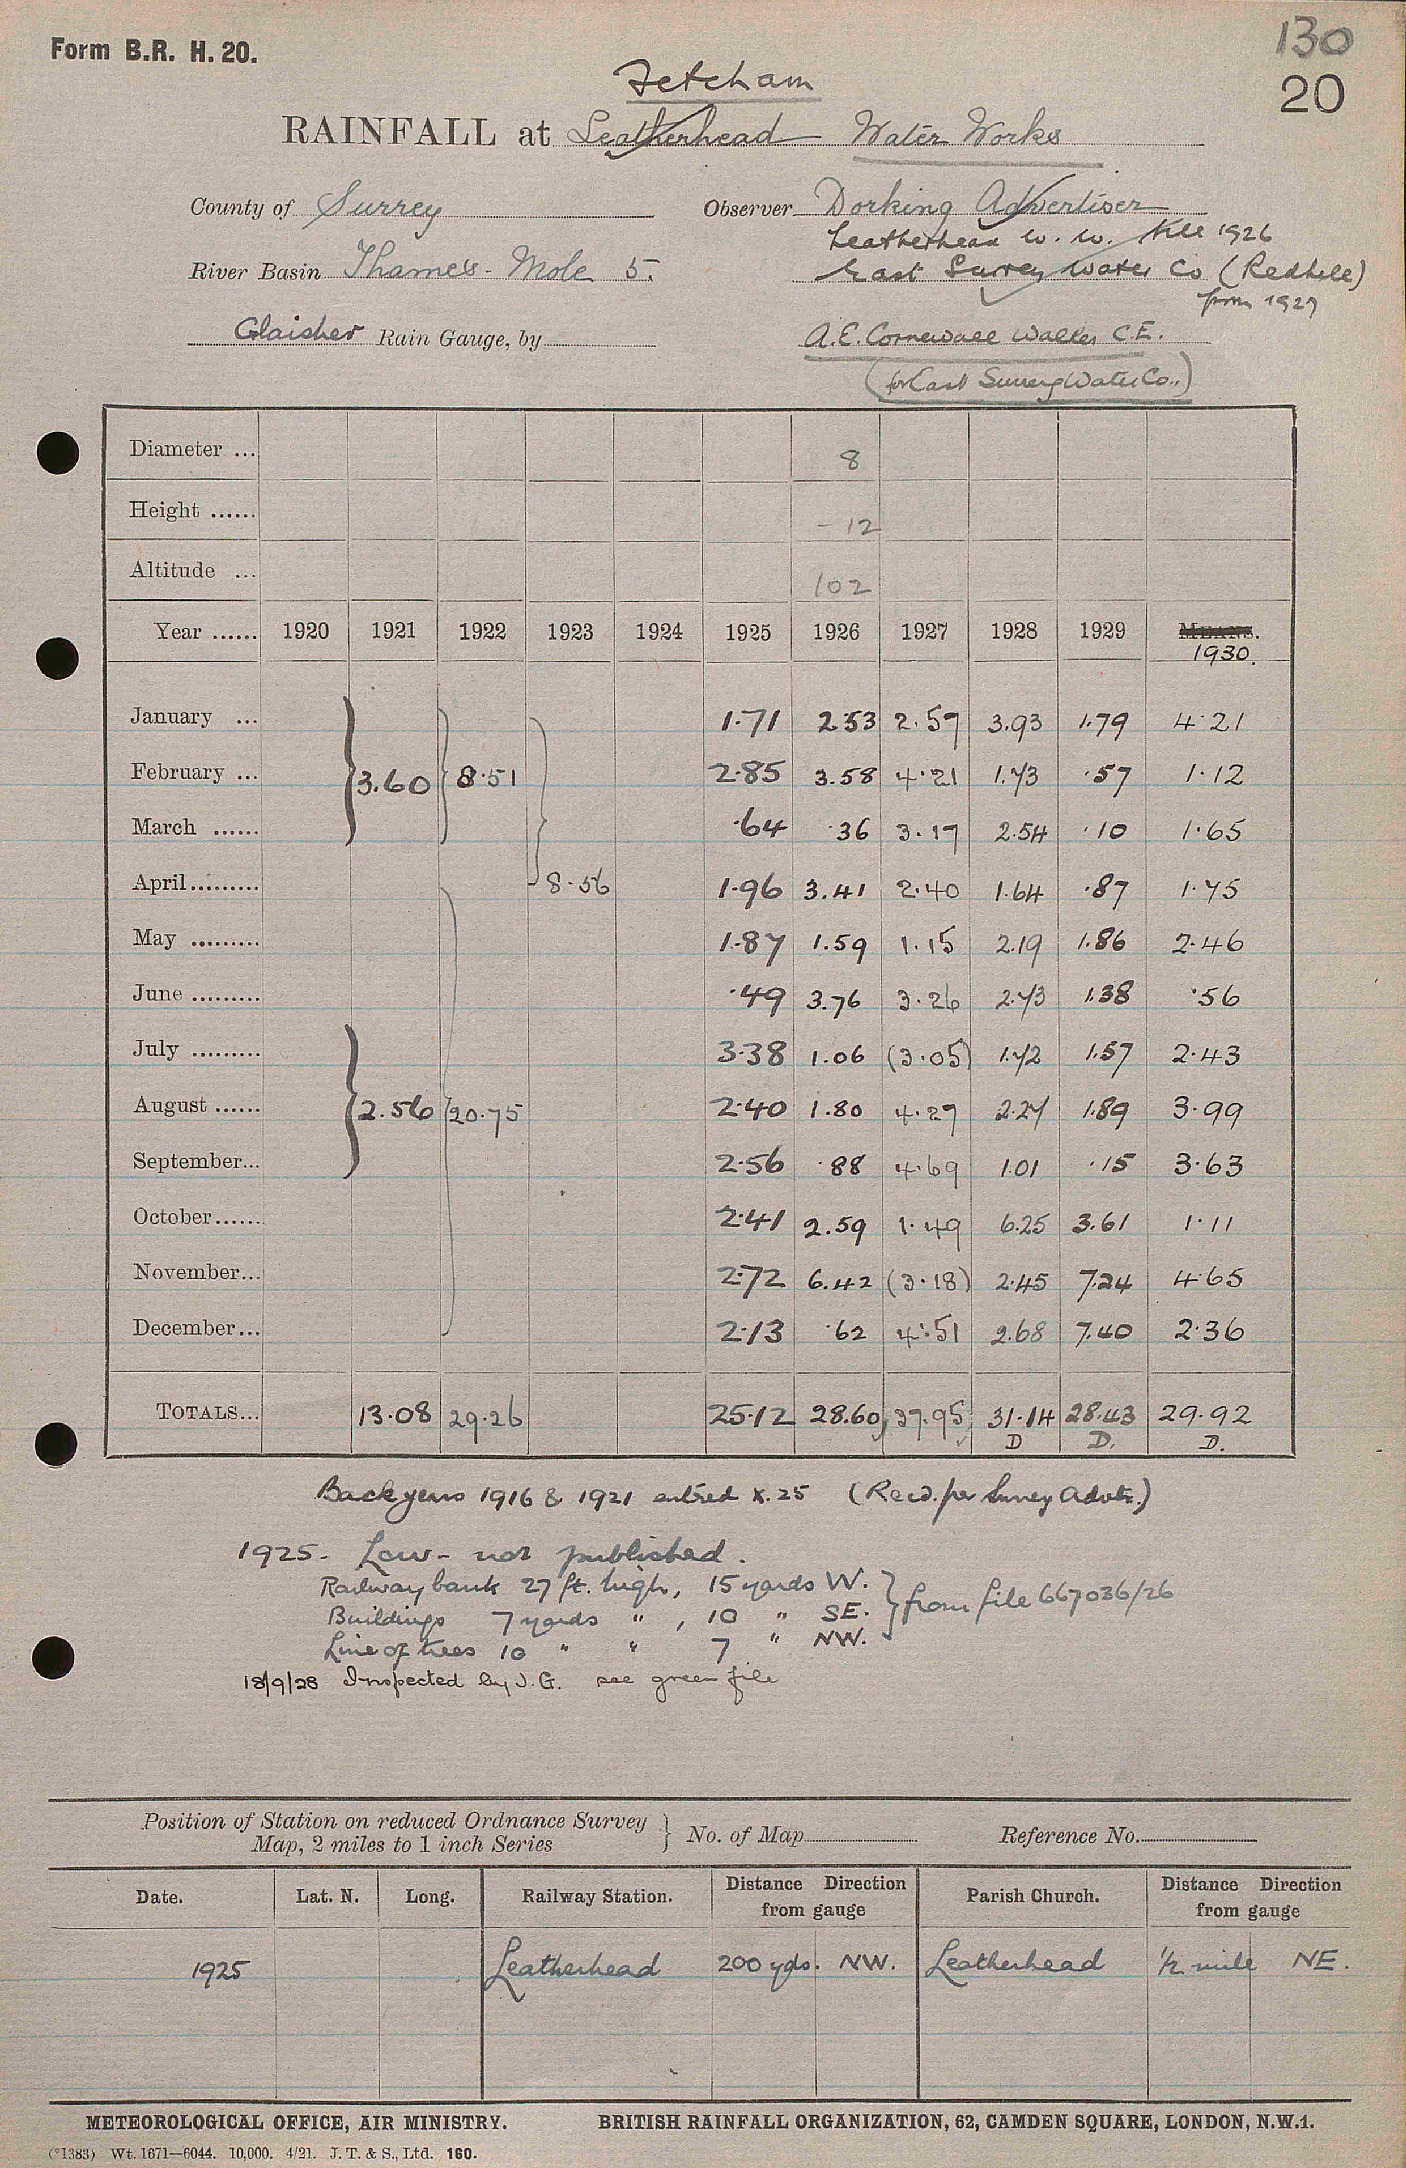 Form B.R. H. 20.
130
20
Fetcham
RAINFALL at Leatherhead Water Works
County of Surrey
Observer Dorking Advertiser
Leatherhead W. W. till 1926
River Basin Thames - Mole 5.
East Surrey Water Co (Redhill)
from 1927
Glaisher Rain Gauge, by
A.E. Cornewall Walker C.E.
(for East Surrey Water Co.,)
Diameter ... 8
Height ...... - 12
Altitude ... 102
Year ...... 1920 1921 1922 1923 1924 1925 1926 1927 1928 1929 MEANS.
1930.
January ... 1.71 2.53 2.57 3.93 1.79 4.21
February ... 3.60 8.51 2.85 3.58 4.21 1.73 .57 1.12
March ...... .64 .36 3.17 2.54 .10 1.65
April......... 8.56 1.96 3.41 2.40 1.64 .87 1.75
May ......... 1.87 1.59 1.15 2.19 1.86 2.46
June ......... .49 3.76 3.26 2.73 1.38 .56
July ......... 3.38 1.06 (3.05) 1.72 1.57 2.43
August ...... 2.56 20.75 2.40 1.80 4.27 2.27 1.89 3.99
September... 2.56 .88 4.69 1.01 .15 3.63
October...... 2.41 2.59 1.49 6.25 3.61 1.11
November... 2.72 6.42 (3.18) 2.45 7.24 4.65
December... 2.13 .62 4.51 2.68 7.40 2.36
TOTALS... 13.08 29.26 25.12 28.60 37.95 31.14 28.43 29.92
D D. D.
Back years 1916 & 1921 entred X.25 (Recd. per Surrey Advtr.)
1925 - Low - not published.
Railway bank 27 ft. high, 15 yards W.
Buildings 7 yards " , 10 " SE. } from file 667036/26
Line of trees 10 " " 7 " NW.
18/9/28 Inspected by J.G. see green file
Position of Station on reduced Ordnance Survey
Map, 2 miles to 1 inch Series } No. of Map Reference No.
Date. Lat. N. Long. Railway Station. Distance Direction from gauge Parish Church. Distance Direction from gauge
1925 Leatherhead 200 yds. NW. Leatherhead 1/2 mile NE.
METEOROLOGICAL OFFICE, AIR MINISTRY. BRITISH RAINFALL ORGANIZATION, 62, CAMDEN SQUARE, LONDON, N.W.1.
(*1383) Wt. 1671—6044. 10,000. 4/21. J. T. & S., Ltd. 160.